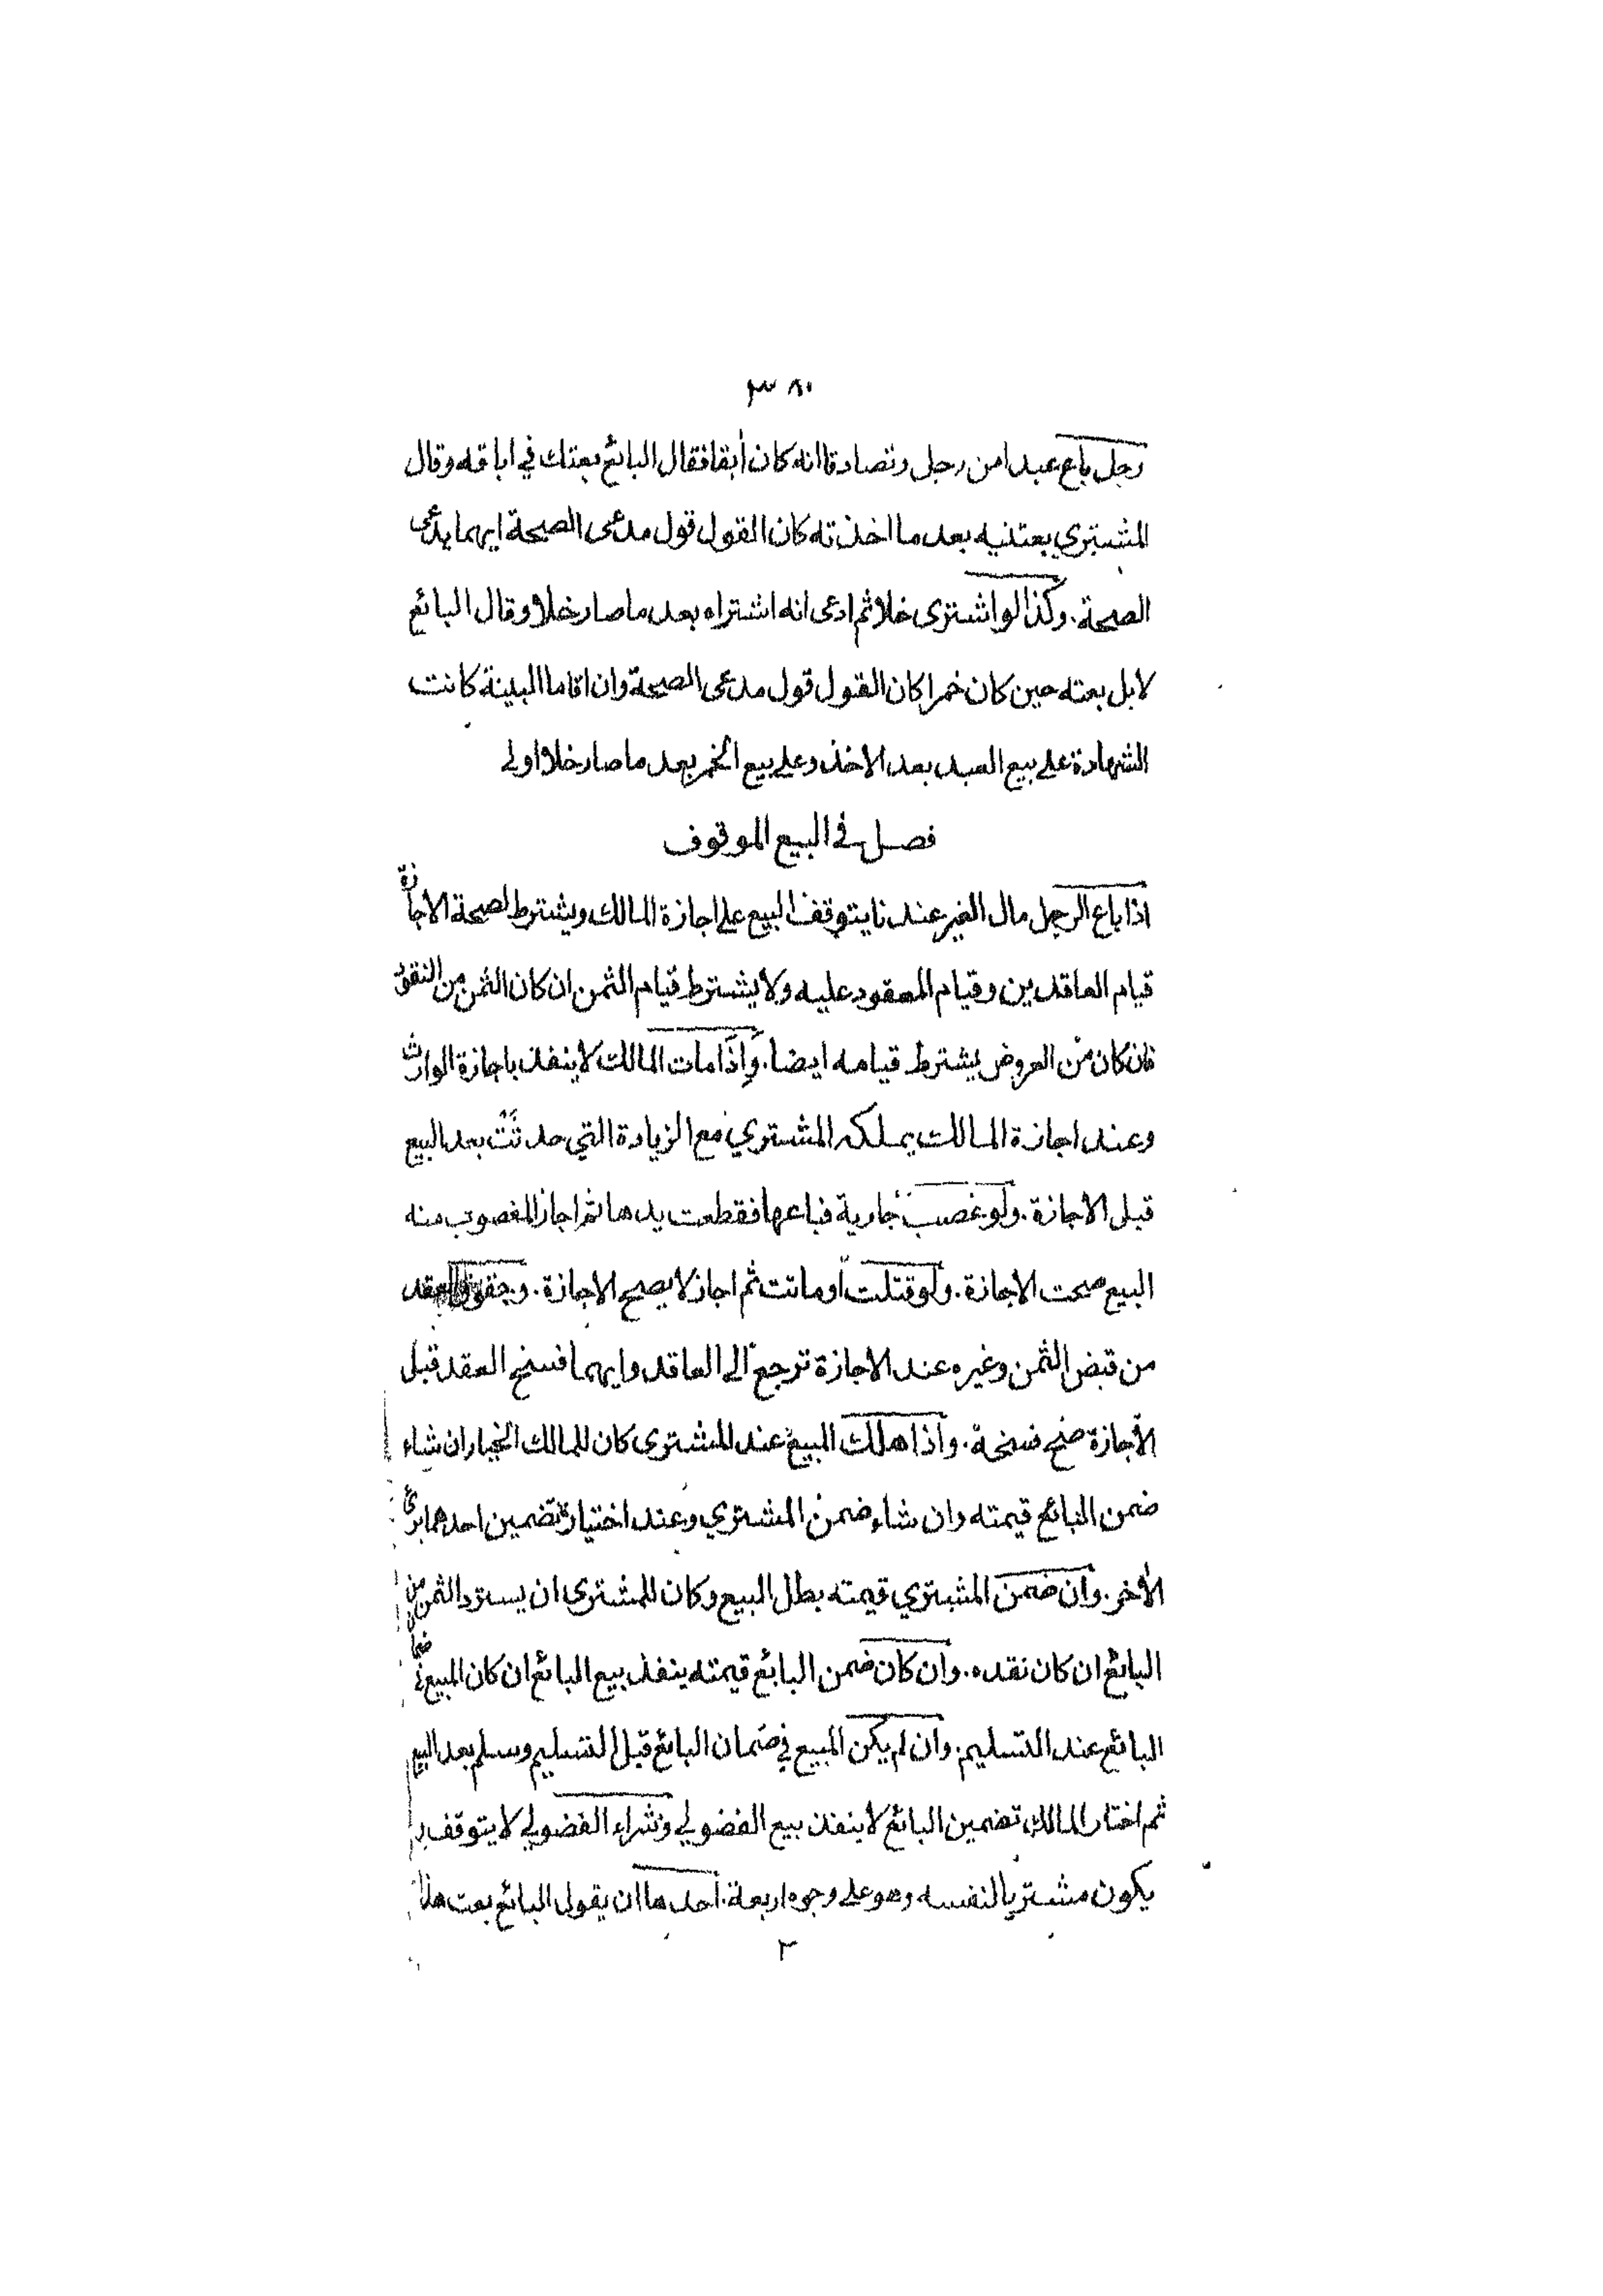 ٣٨٠
رجل باع عبدا من رجل وتصادقا انه كان أبقا فقال البائع بعتك في اباقه وقال
المشتري بعتنيه بعد ما اخذته كان القول قول مدعى الصحة ايهما يدعى
الصحة. وكذا لو اشترى خلا ثم ادعى انه اشتراه بعد ما صار خلا وقال البائع
لا بل بعته حين كان خمرا كان القول قول مدعى الصحة وان اقاما البينة كانت
الشهادة على بيع العبد بعد الاخذ وعلى بيع الخمر بعد ما صار خلا اولى
فصل في البيع الموقوف
اذا باع الرجل مال الغير عندنا يتوقف البيع على اجازة المالك ويشترط لصحة الاجازة
قيام العاقدين وقيام المعقود عليه ولا يشترط قيام الثمن ان كان الثمن من النقود
فان كان من العروض يشترط قيامه ايضا. وإذا مات المالك لا ينفذ باجازة الوارث
وعند اجازة المالك يملكه المشتري مع الزيادة التي حدثت بعد البيع
قبل الاجازة. ولو غصب جارية فباعها فقطعت يدها ثم اجاز المغصوب منه
البيع صحت الاجازة. ولو قتلت او ماتت ثم اجاز لا يصح الاجازة. وحقوق العقد
من قبض الثمن وغيره عند الاجازة ترجع الى العاقد وايهما فسخ العقد قبل
الاجازة صح فسخة. واذا هلك المبيع عند المشترى كان للمالك الخيار ان شاء
ضمن البائع قيمته وان شاء ضمن المشتري وعند اختياره تضمين احدهما برئ
الأخر. وان ضمن المشتري قيمته بطل البيع وكان للمشترى ان يسترد الثمن من
البائع ان كان نقده. وان كان ضمن البائع قيمته ينفذ بيع البائع ان كان المبيع في ضمان
البائع عند التسليم. وان لم يكن المبيع في ضمان البائع قبل التسليم وسلم بعد البيع
ثم اختار المالك تضمين البائع لا ينفذ بيع الفضولي وشراء الفضولي لا يتوقف و
يكون مشتريا لنفسه وهو على وجوه اربعة. احدها ان يقول البائع بعت هذا
٣